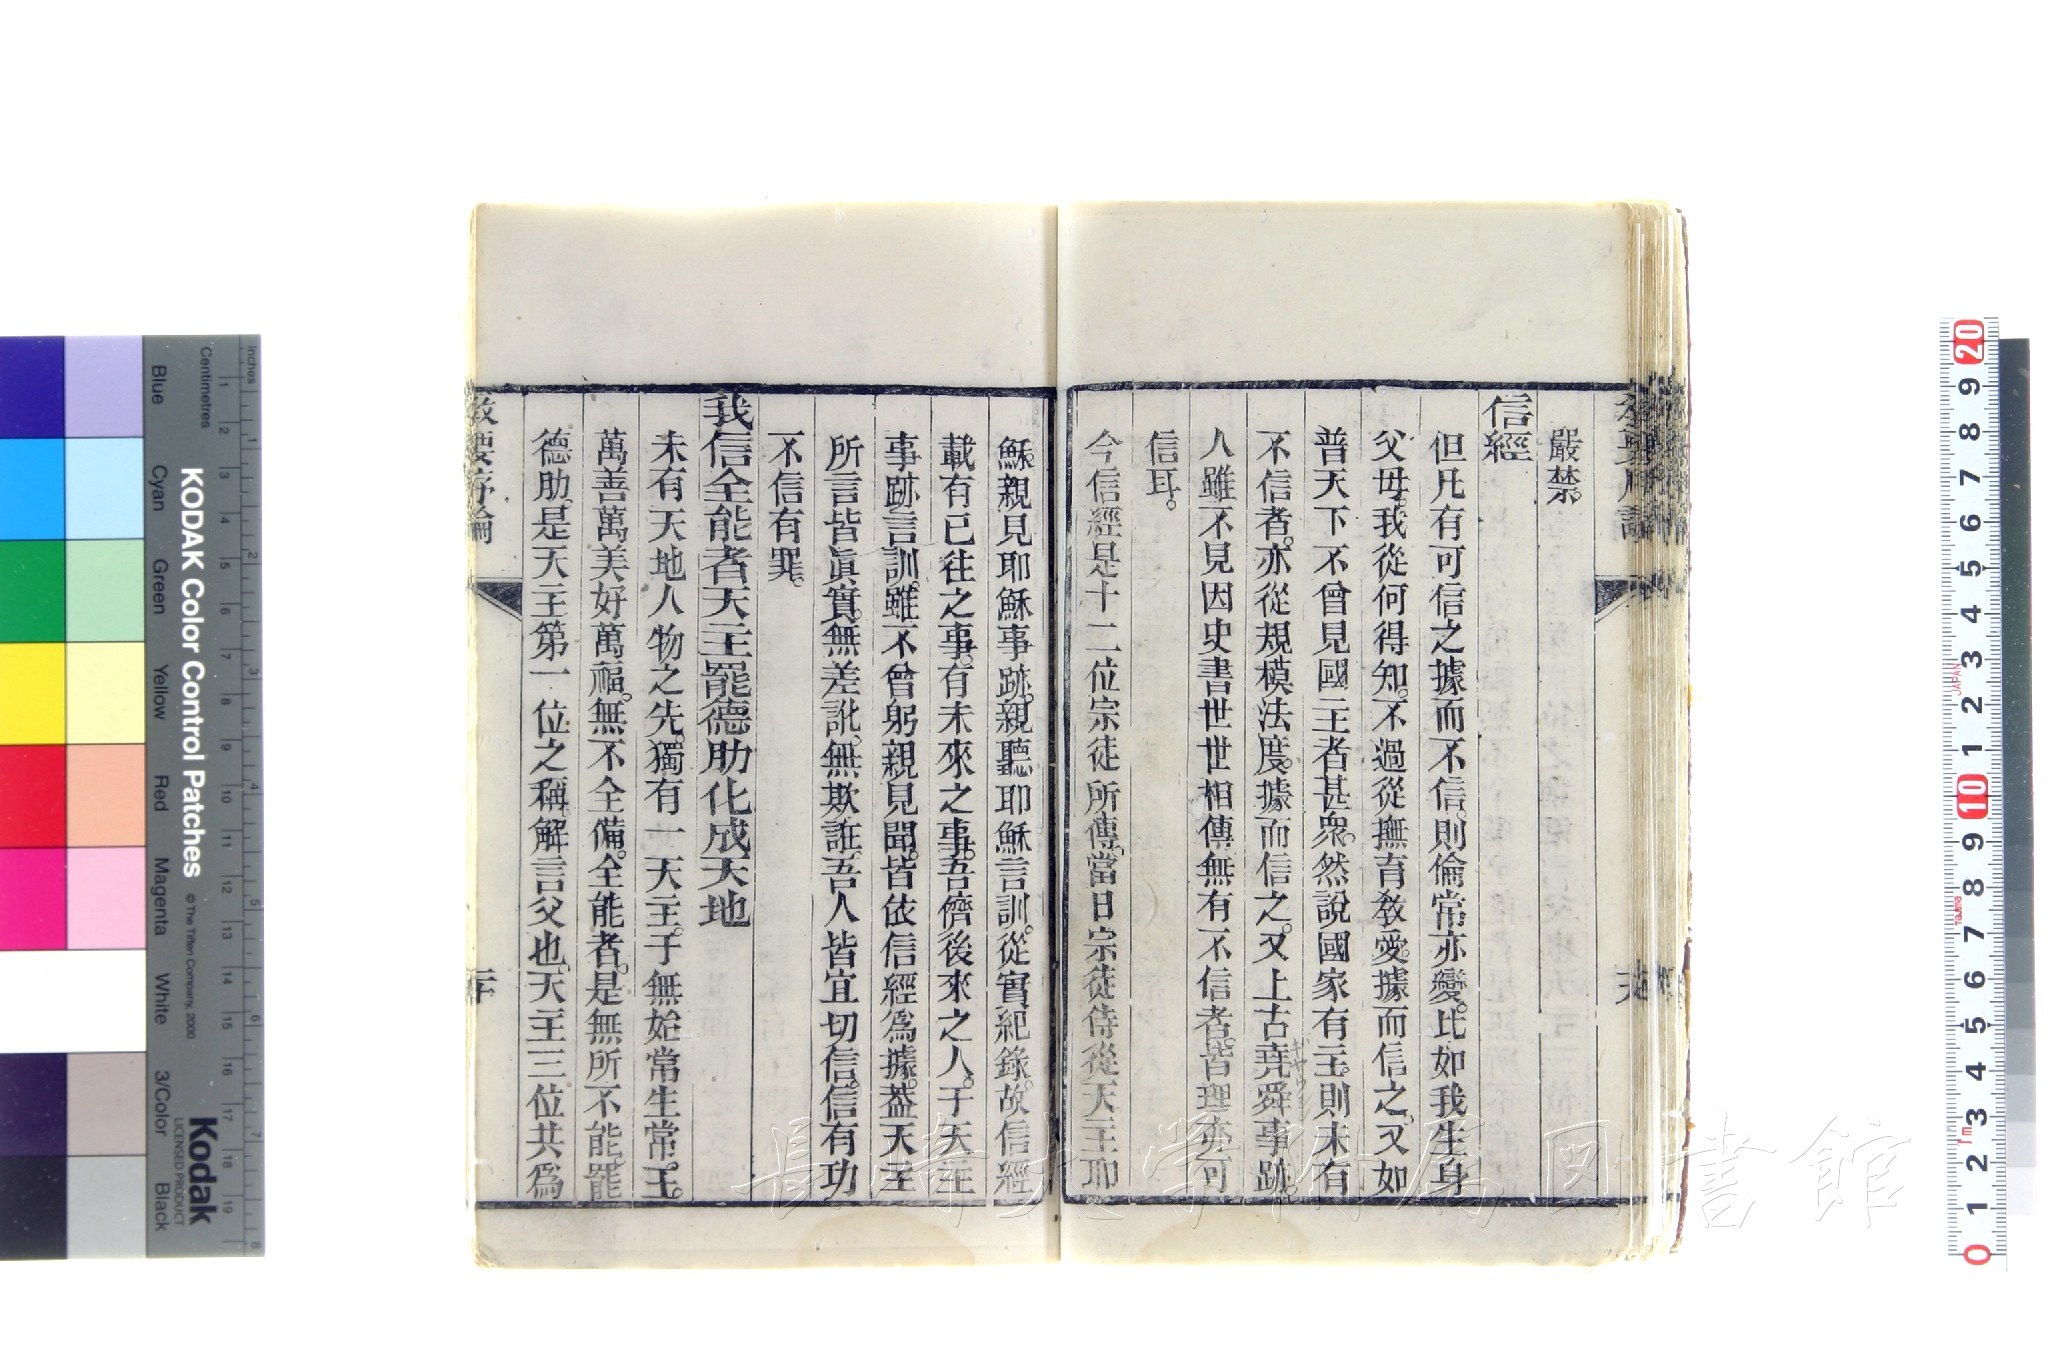 嚴禁。
信經
但凡有可信之據而不信。則倫常亦變。比如我生身
父母。我從何得知。不過從撫育敎愛。據而信之。又如
普天下不曾見國王者甚衆。然說國家有王。則未有
不信者。亦從規模法度。據而信之。又上古堯舜事跡。
人雖不見因史書世世相傳無有不信者。皆理亦可
信耳。
今信經是十二位宗徒所傳。當日宗徒侍從天主耶
穌。親見耶穌事跡。親聽耶穌言訓。從實紀錄。故信經
載有已往之事。有未來之事。吾儕後來之人。于天主
事跡言訓。雖不曾躬親見聞。皆依信經爲據。葢天主
所言皆眞實。無差訛。無欺誑。吾人皆宜切信。信有功
不信有罪。
我信全能者天主罷德肋化成天地
未有天地人物之先。獨有一天主。子無始常生常王。
萬善萬美好萬福。無不全備。全能者。是無所不能。罷
德肋。是天主第一位之稱。解言父也。天主三位共爲
敎要序論
二十
長崎大学附属図書館
KODAK Color Control Patches
© The Tiffen Company, 2000
Kodak
LICENSED PRODUCT
Inches
Centimetres
Blue
Cyan
Green
Yellow
Red
Magenta
White
3/Color
Black
1 2 3 4 5 6 7 8 9 10 11 12 13 14 15 16 17 18 19
20 9 8 7 6 5 4 3 2 1 10 9 8 7 6 5 4 3 2 1 0
JAPAN